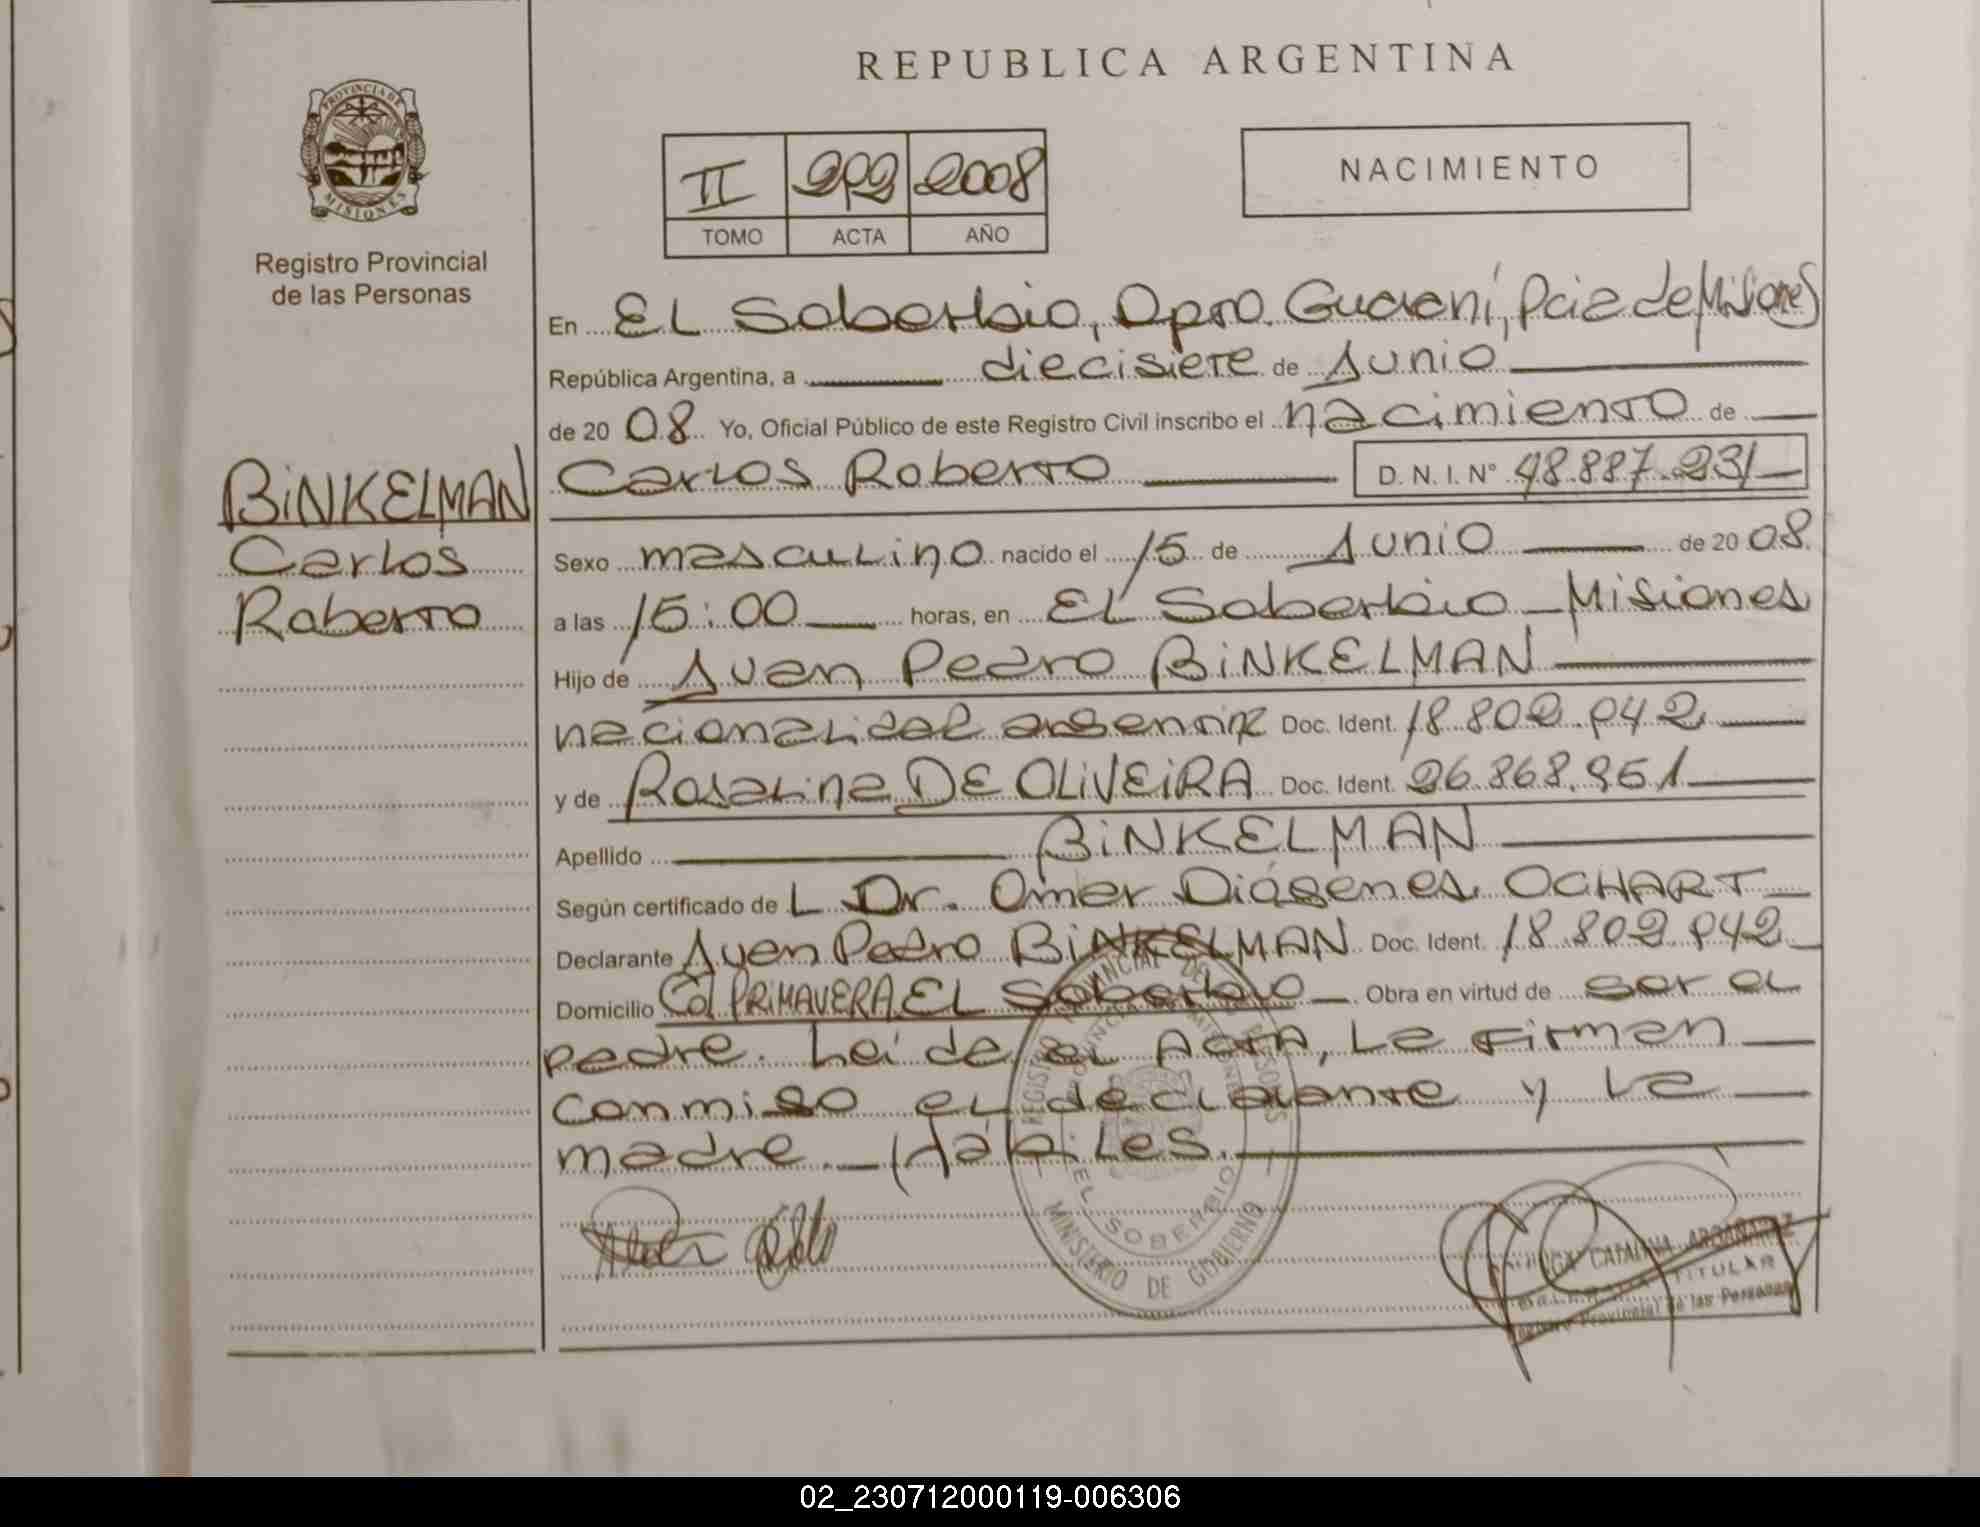 REPUBLICA ARGENTINA
PROVINCIA DE
MISIONES
Registro Provincial
de las Personas
II
2008
TOMO
ACTA
AÑO
NACIMIENTO
En El Soberbio, Dpto. Guaraní, Pcia de Misiones
República Argentina, a diecisiete de Junio
de 20 08 Yo, Oficial Público de este Registro Civil inscribo el nacimiento de
BINKELMAN
Carlos
Roberto
Carlos Roberto D. N. I. N° 48.887.231
Sexo masculino nacido el 15 de Junio de 20 08
a las 15:00 horas, en El Soberbio - Misiones
Hijo de Juan Pedro BINKELMAN
nacionalidad argentina Doc. Ident. 18.802.942
y de Rosalina DE OLIVEIRA Doc. Ident. 26.868.961
Apellido BINKELMAN
Según certificado de L Dr. Omar Diógenes OCHART
Declarante Juan Pedro BINKELMAN Doc. Ident. 18.802.942
Domicilio Col PRIMAVERA EL Soberbio Obra en virtud de ser el
padre. Leída el Acta, la firman
conmigo el declarante y la
madre. - Hábiles.
EL SOBERBIO
MINISTERIO DE GOBIERNO
CATALINA
TITULAR
Registro Provincial de las Personas
02_230712000119-006306